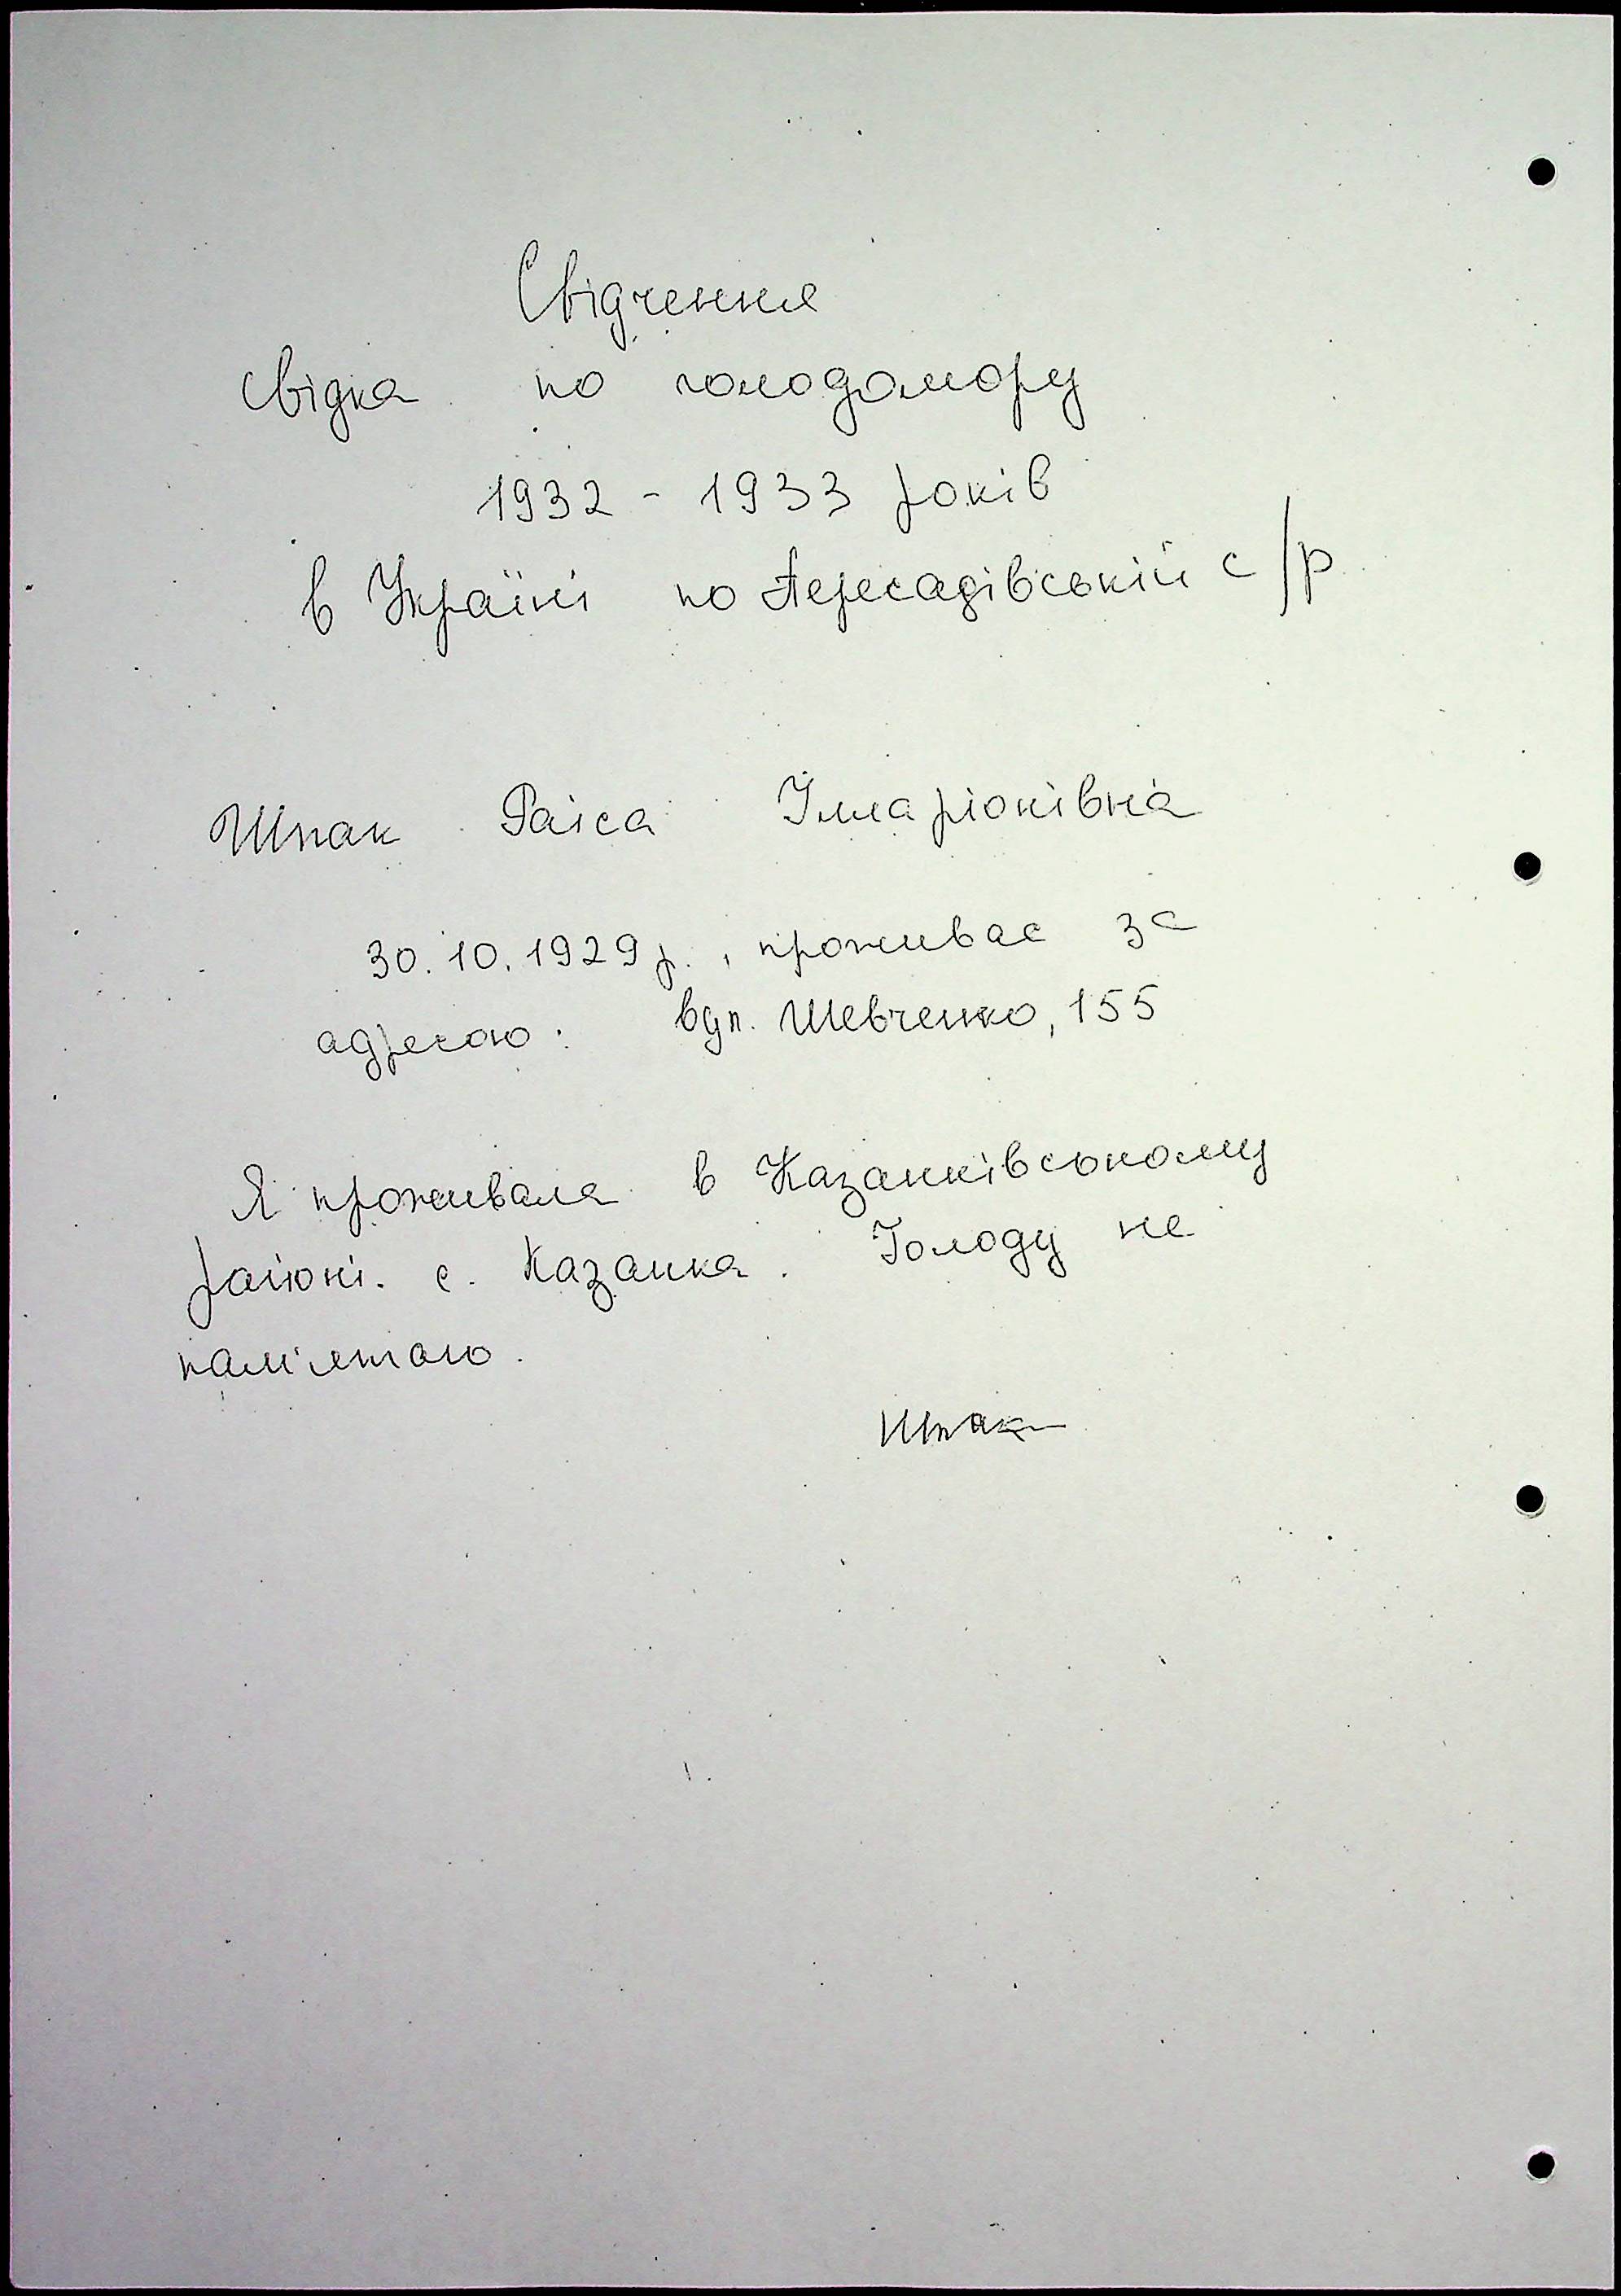 Свідчення
свідка по голодомору
1932 - 1933 років
в Україні по Пересадівській с/р
Шпак Раїса Ілларіонівна
30.10.1929 р., проживає за
адресою: вул. Шевченко, 155
Я проживала в Казанківському
районі. с. Казанка. Голоду не
пам'ятаю.
Шпак